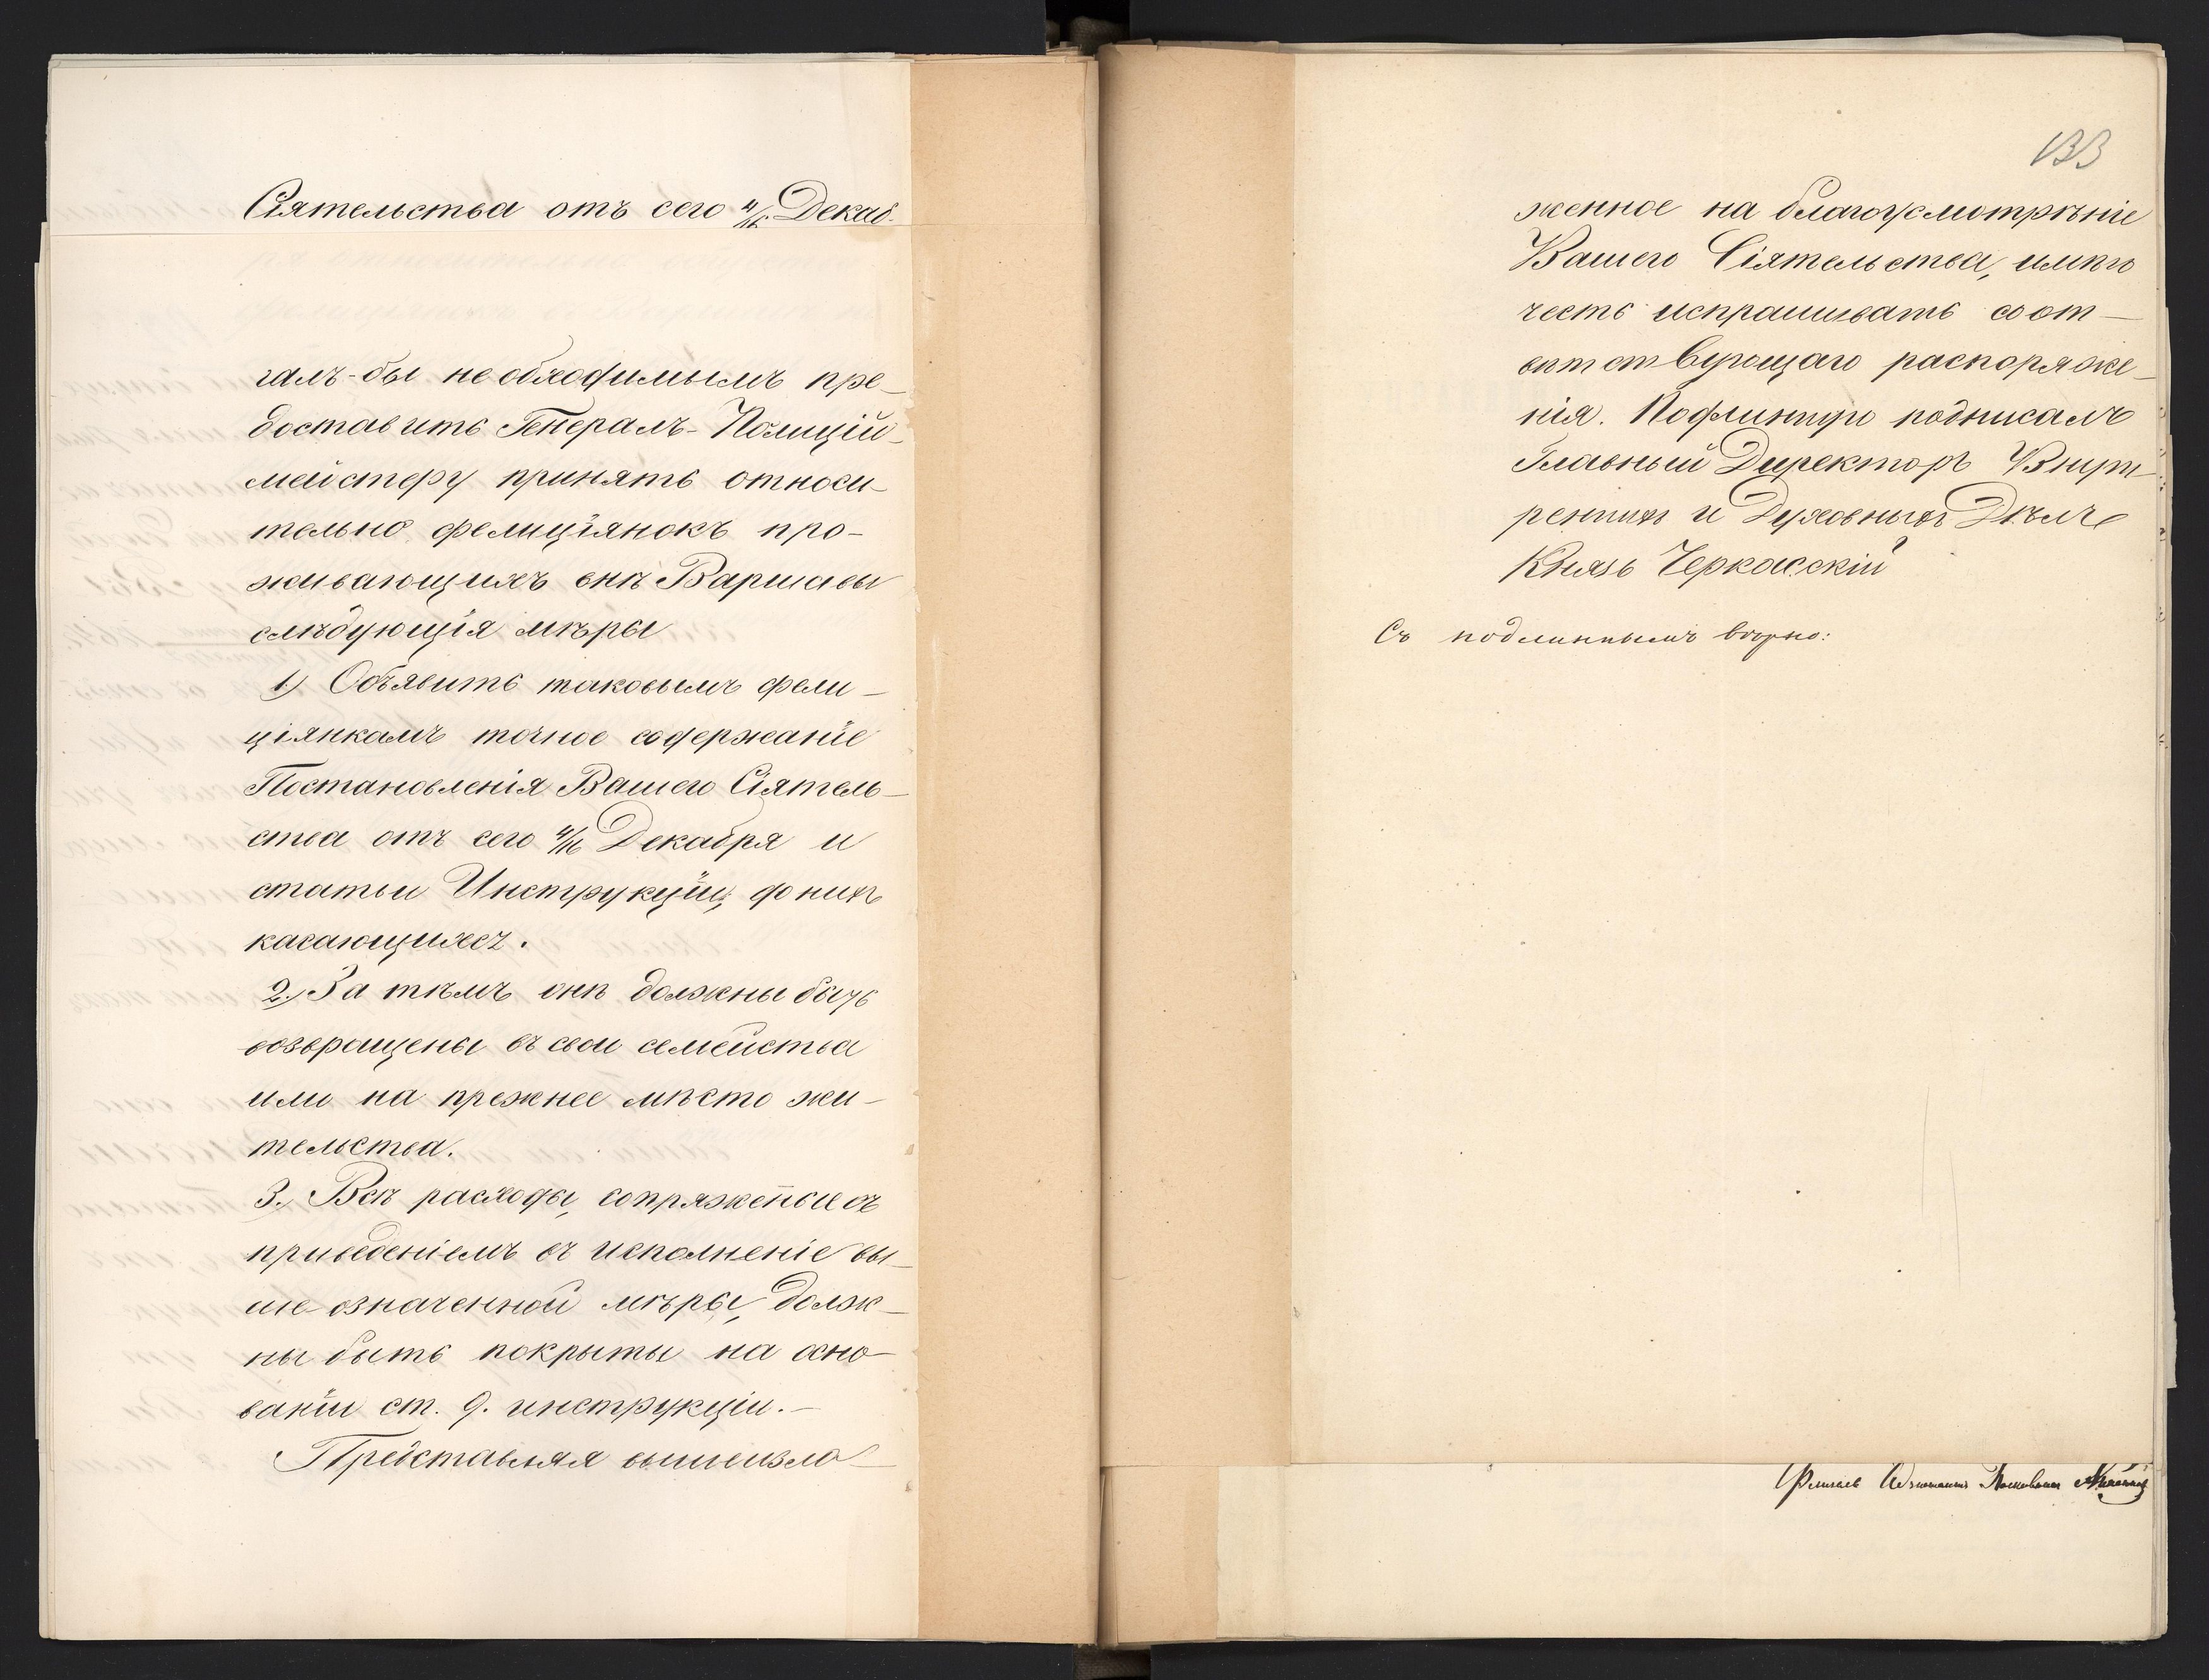 Сіятельства отъ сего 4/16 Декаб-
галъ-бы необходимымъ пре-
доставить Генералъ-Полицій-
мейстеру принять относи-
тельно фелиціянокъ про-
живающихъ внѣ Варшавы
слѣдующія мѣры
1) Объявить таковымъ фели-
ціянкамъ точное содержаніе
Постановленія Вашего Сіятель-
ства отъ сего 4/16 Декабря и
статьи Инструкціи, до нихъ
касающихся.
2.) За тѣмъ онѣ должны быть
возвращены въ свои семейства
или на прежнее мѣсто жи-
тельства.
3.) Всѣ расходы, сопряженые съ
приведеніемъ въ исполненіе вы-
ше-означенной мѣры, долж-
ны быть покрыты на осно-
ваніи ст. 9. инструкціи.-
Представляя вышеизло-
133
женное на благоусмотрѣніе
Вашего Сіятельства, имѣю
честь испрашивать соот-
вѣтствующаго распоряже-
нія. Подлинную подписалъ
Главный Директоръ Внут-
реннихъ и Духовныхъ Дѣлъ
Князь Черкасскій
Съ подлиннымъ вѣрно: